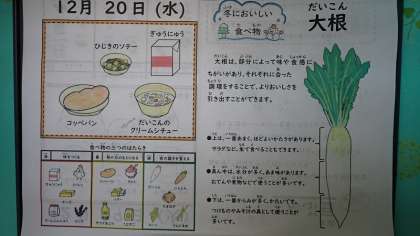 12月 20日(水)
ひじきのソテー
ぎゅうにゅう
コッペパン
だいこんの
クリームシチュー
食べ物の三つのはたらき
冬においしい
食べ物
だいこん
大根
大根は、部分によって味や食感に
ちがいがあり、それぞれに合った
調理をすることで、よりおいしさを
引き出すことができます。
●上は、一番あまく、ほどよいかたさがあります。
サラダなど、生で食べることもできます。
●真ん中は、水分が多く、あま味があります。
おでんや煮物などして使うことが
多いです。
●下は、一番からみが多く、かたいです。
つけものやみそ汁の具として使うことが
多いです。